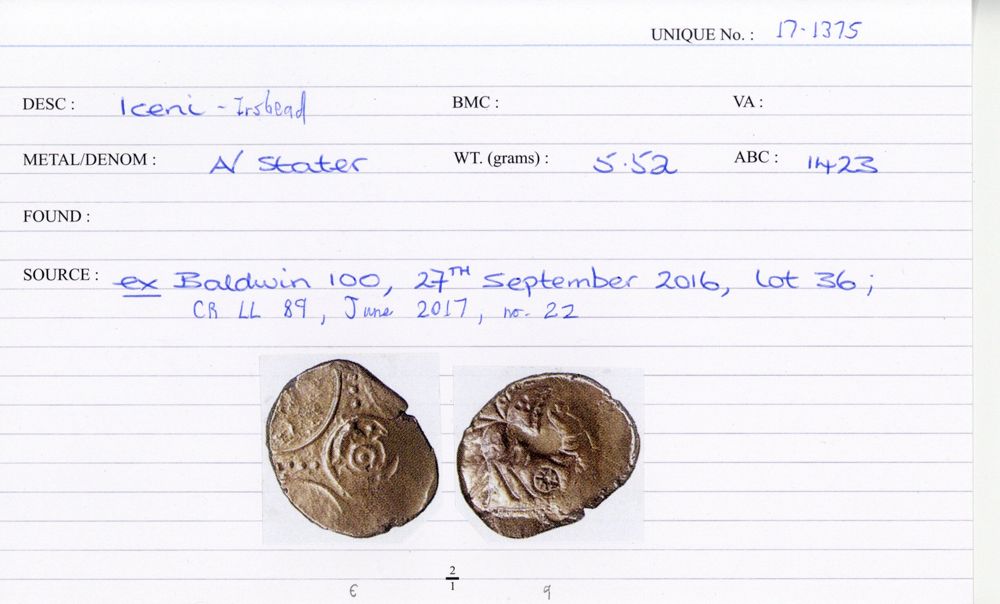 UNIQUE No. : 17·1375
DESC : Iceni - Irstead BMC : VA :
METAL/DENOM : A/ Stater WT. (grams) : 5·52 ABC : 1423
FOUND :
SOURCE : ex Baldwin 100, 27TH September 2016, lot 36;
CR LL 89, June 2017, no. 22
2
1